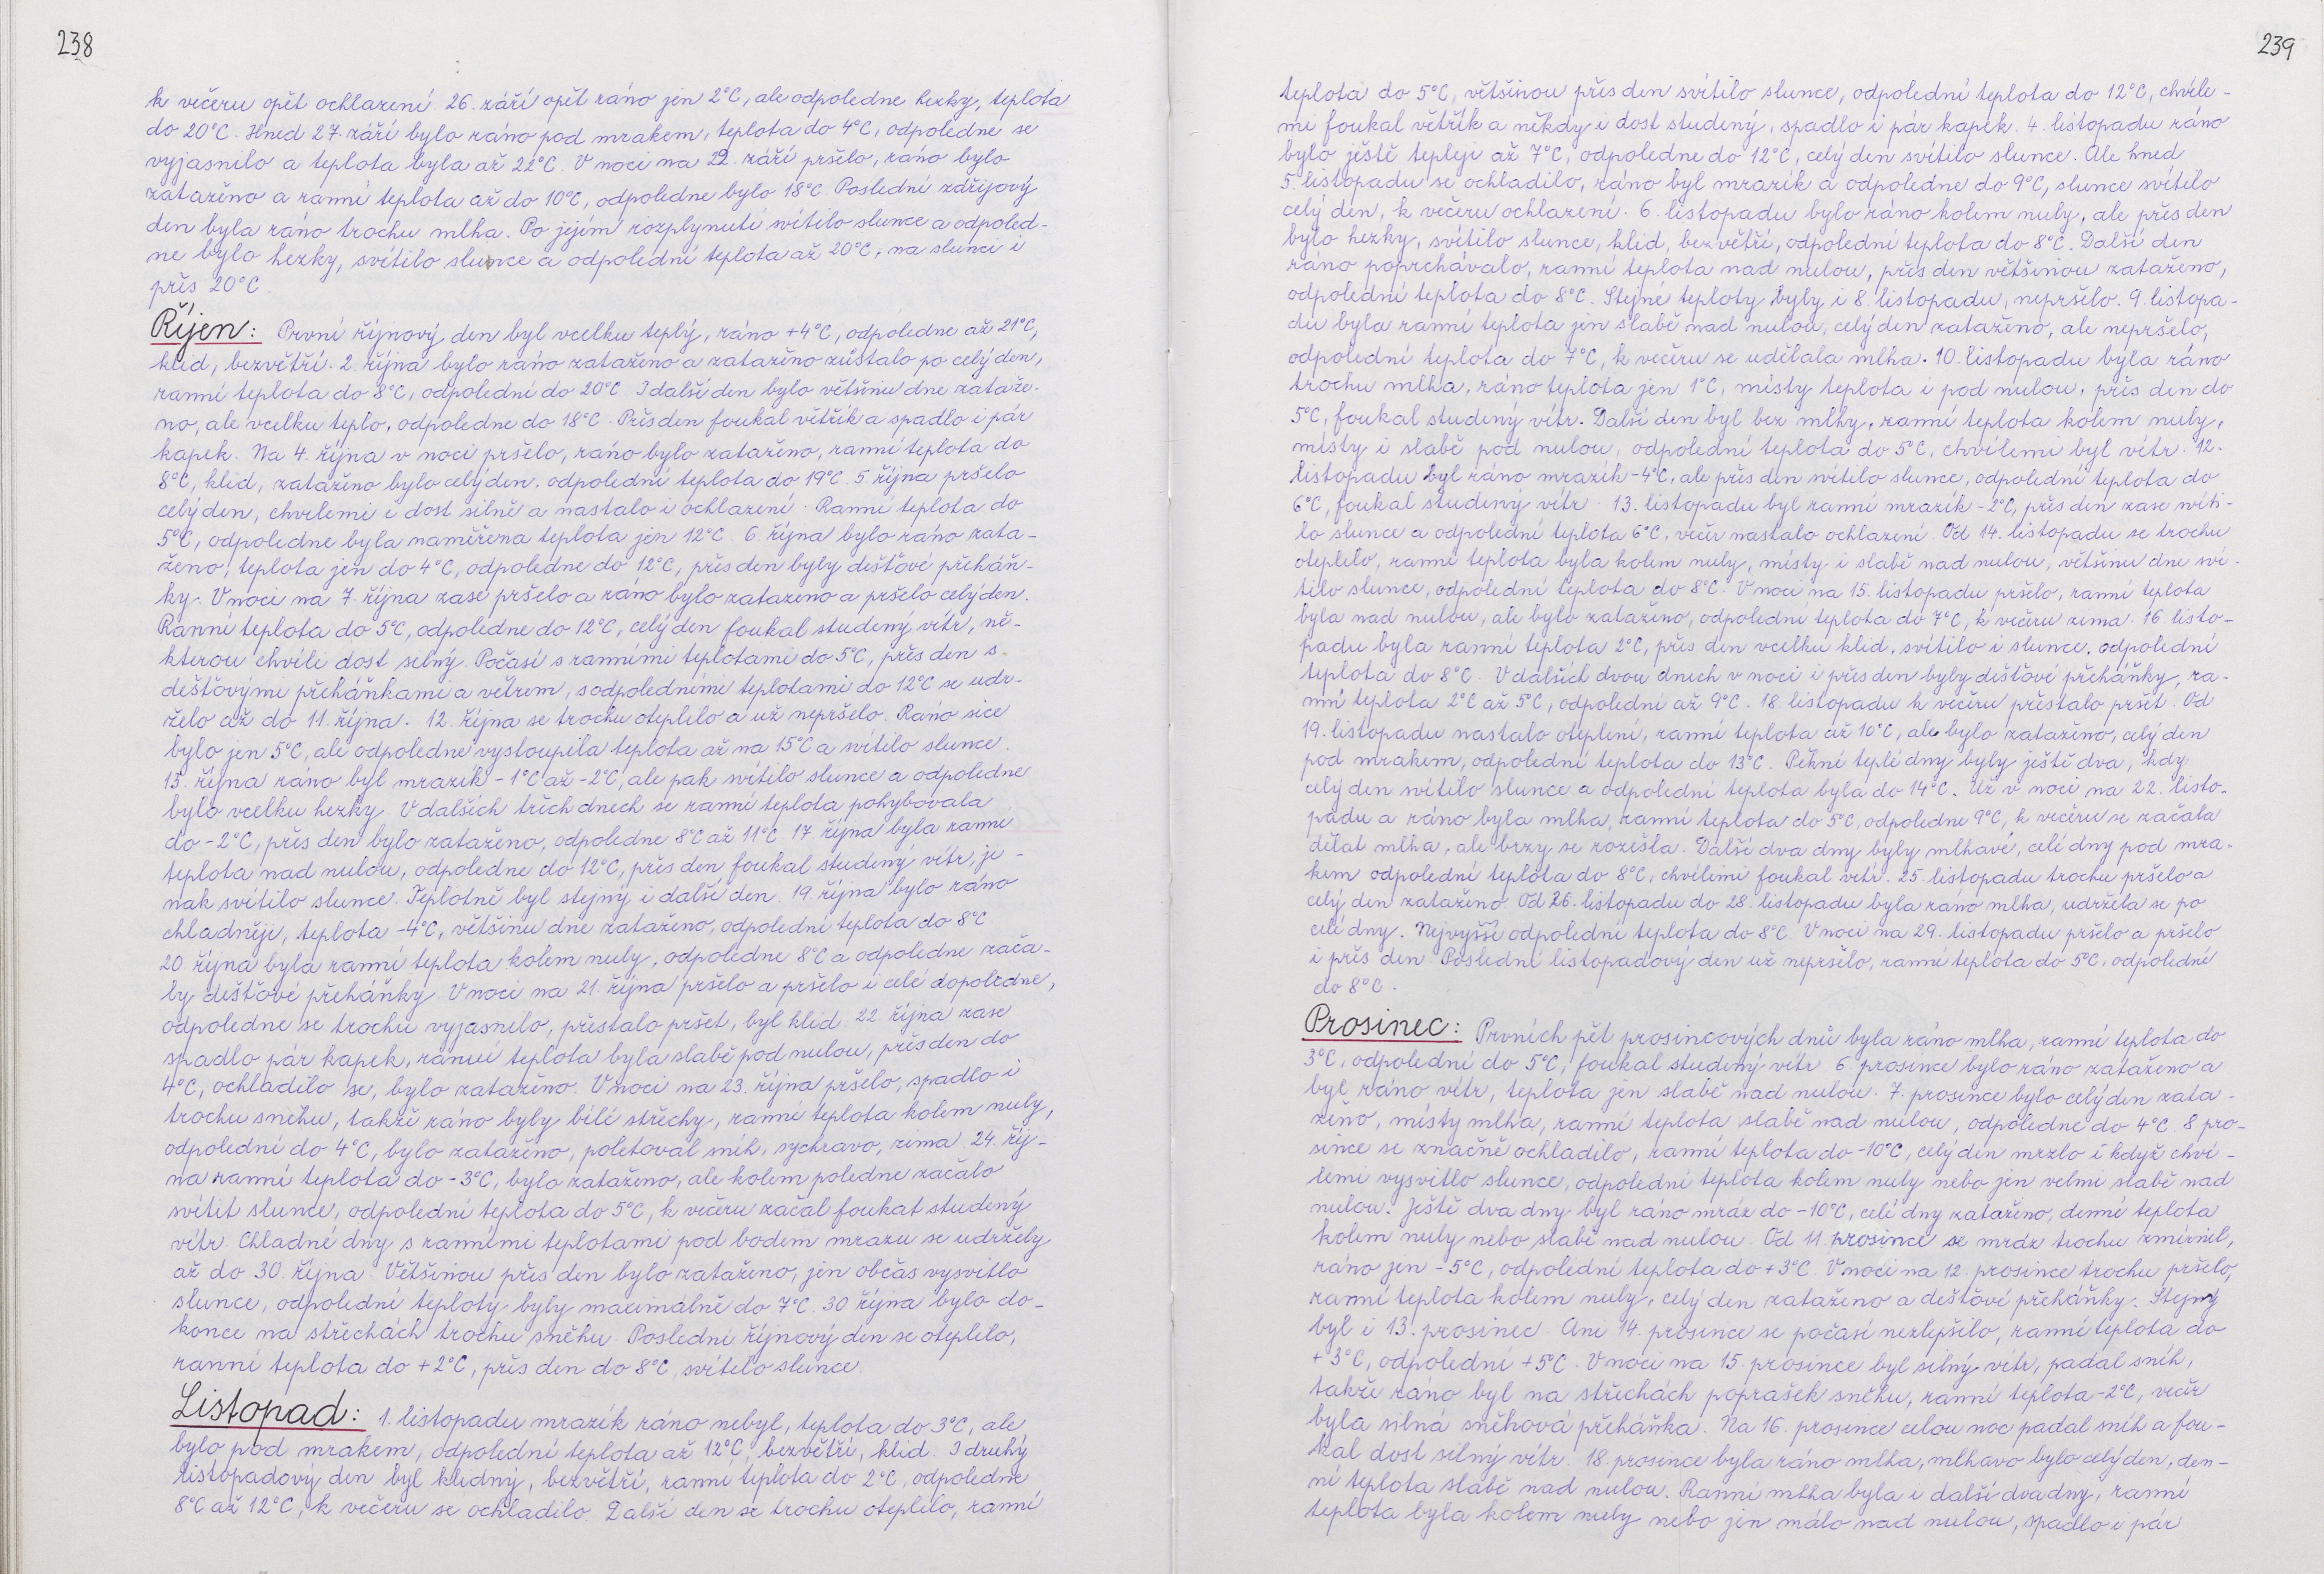 238
k večeru opět ochlazení. 26. září opět ráno jen 2°C, ale odpoledne hezky, teplota
do 20°C. Hned 27. září bylo ráno pod mrakem, teplota do 4°C, odpoledne se
vyjasnilo a teplota byla až 22°C. V noci na 22. září pršelo, ráno bylo
zataženo a ranní teplota až do 10°C, odpoledne bylo 18°C. Poslední zářijový
den byla ráno trochu mlha. Po jejím rozplynutí svítilo slunce a odpoled-
ne bylo hezky, svítilo slunce a odpolední teplota až 20°C, na slunci i
přes 20°C.
Říjen: První říjnový den byl vcelku teplý, ráno +4°C, odpoledne až 21°C,
klid, bezvětří. 2. října bylo ráno zataženo a zataženo zůstalo po celý den,
ranní teplota do 8°C, odpolední do 20°C. I další den bylo většinu dne zataže-
no, ale vcelku teplo, odpoledne do 18°C. Přes den foukal větřík a spadlo i pár
kapek. Na 4. října v noci pršelo, ráno bylo zataženo, ranní teplota do
8°C, klid, zataženo bylo celý den. odpolední teplota do 19°C. 5. října pršelo
celý den, chvílemi i dost silně a nastalo i ochlazení. Ranní teplota do
5°C, odpoledne byla naměřena teplota jen 12°C. 6. října bylo ráno zata-
ženo, teplota jen do 4°C, odpoledne do 12°C, přes den byly dešťové přeháň-
ky. V noci na 7. října zase pršelo a ráno bylo zataženo a pršelo celý den.
Ranní teplota do 5°C, odpoledne do 12°C, celý den foukal studený vítr, ně-
kterou chvíli dost silný. Počasí s ranními teplotami do 5°C, přes den s
dešťovými přeháňkami a větrem, s odpoledními teplotami do 12°C se udr-
želo až do 11. října. 12. října se trochu oteplilo a už nepršelo. Ráno sice
bylo jen 5°C, ale odpoledne vystoupila teplota až na 15°C a svítilo slunce.
13. října ráno byl mrazík -1°C až -2°C, ale pak svítilo slunce a odpoledne
bylo vcelku hezky. V dalších třech dnech se ranní teplota pohybovala
do -2°C, přes den bylo zataženo, odpoledne 8°C až 11°C. 17. října byla ranní
teplota nad nulou, odpoledne do 12°C, přes den foukal studený vítr, ji-
nak svítilo slunce. Teplotně byl stejný i další den. 19. října bylo ráno
chladněji, teplota -4°C, většinu dne zataženo, odpolední teplota do 8°C
20 října byla ranní teplota kolem nuly, odpoledne 8°C a odpoledne zača-
ly dešťové přeháňky. V noci na 21. října pršelo a pršelo i celé dopoledne,
odpoledne se trochu vyjasnilo, přestalo pršet, byl klid. 22. října zase
spadlo pár kapek, ranní teplota byla slabě pod nulou, přes den do
4°C, ochladilo se, bylo zataženo. V noci na 23. října pršelo, spadlo i
trochu sněhu, takže ráno byly bílé střechy, ranní teplota kolem nuly,
odpolední do 4°C, bylo zataženo, poletoval sníh, sychravo, zima. 24. říj-
na ranní teplota do -3°C, bylo zataženo, ale kolem poledne začalo
svítit slunce, odpolední teplota do 5°C, k večeru začal foukat studený
vítr. Chladné dny s ranními teplotami pod bodem mrazu se udržely
až do 30. října. Většinou přes den bylo zataženo, jen občas vysvitlo
slunce, odpolední teploty byly maximálně do 7°C. 30 října bylo do-
konce na střechách trochu sněhu. Poslední říjnový den se oteplilo,
ranní teplota do +2°C, přes den do 8°C, svítilo slunce.
Listopad: 1. listopadu mrazík ráno nebyl, teplota do 3°C, ale
bylo pod mrakem, odpolední teplota až 12°C, bezvětří, klid. I druhý
listopadový den byl klidný, bezvětří, ranní teplota do 2°C, odpoledne
8°C až 12°C, k večeru se ochladilo. Další den se trochu oteplilo, ranní
239
teplota do 5°C, většinou přes den svítilo slunce, odpolední teplota do 12°C, chvíle-
mi foukal větřík a někdy i dost studený, spadlo i pár kapek. 4. listopadu ráno
bylo ještě tepleji až 7°C, odpoledne do 12°C, celý den svítilo slunce. Ale hned
5. listopadu se ochladilo, ráno byl mrazík a odpoledne do 9°C, slunce svítilo
celý den, k večeru ochlazení. 6. listopadu bylo ráno kolem nuly, ale přes den
bylo hezky, svítilo slunce, klid, bezvětří, odpolední teplota do 8°C. Další den
ráno poprchávalo, ranní teplota nad nulou, přes den většinou zataženo,
odpolední teplota do 8°C. Stejné teploty byly i 8. listopadu, nepršelo. 9. listopa-
du byla ranní teplota jen slabě nad nulou, celý den zataženo, ale nepršelo,
odpolední teplota do 7°C, k večeru se udělala mlha. 10. listopadu byla ráno
trochu mlha, ráno teplota jen 1°C, místy teplota i pod nulou, přes den do
5°C, foukal studený vítr. Další den byl bez mlhy, ranní teplota kolem nuly,
místy i slabě pod nulou, odpolední teplota do 5°C, chvílemi byl vítr. 12.
listopadu byl ráno mrazík -4°C, ale přes den svítilo slunce, odpolední teplota do
6°C, foukal studený vítr. 13. listopadu byl ranní mrazík -2°C, přes den zase svíti-
lo slunce a odpolední teplota 6°C, večer nastalo ochlazení. Od 14. listopadu se trochu
oteplilo, ranní teplota byla kolem nuly, místy i slabě nad nulou, většinu dne sví-
tilo slunce, odpolední teplota do 8°C. V noci na 15. listopadu pršelo, ranní teplota
byla nad nulou, ale bylo zataženo, odpolední teplota do 7°C, k večeru zima. 16. listo-
padu byla ranní teplota 2°C, přes den vcelku klid, svítilo i slunce, odpolední
teplota do 8°C. V dalších dvou dnech v noci i přes den byly dešťové přeháňky, ra-
nní teplota 2°C až 5°C, odpolední až 9°C. 18. listopadu k večeru přestalo pršet. Od
19. listopadu nastalo oteplení, ranní teplota až 10°C, ale bylo zataženo, celý den
pod mrakem, odpolední teplota do 13°C. Pěkní teplé dny byly ještě dva, kdy
celý den svítilo slunce a odpolední teplota byla do 14°C. Už v noci na 22. listo-
padu a ráno byla mlha, ranní teplota do 5°C, odpoledne 9°C, k večeru se začala
dělat mlha, ale brzy se rozešla. Další dva dny byly mlhavé, celé dny pod mra-
kem odpolední teplota do 8°C, chvílemi foukal vítr. 25. listopadu trochu pršelo a
celý den zataženo. Od 26. listopadu do 28. listopadu byla ráno mlha, udržela se po
celé dny. Nejvyšší odpolední teplota do 8°C. V noci na 29. listopadu pršelo a pršelo
i přes den. Poslední listopadový den už nepršelo, ranní teplota do 5°C, odpolední
do 8°C.
Prosinec: Prvních pět prosincových dnů byla ráno mlha, ranní teplota do
3°C, odpolední do 5°C, foukal studený vítr. 6. prosince bylo ráno zataženo a
byl ráno vítr, teplota jen slabě nad nulou. 7. prosince bylo celý den zata-
ženo, místy mlha, ranní teplota slabě nad nulou, odpoledne do 4°C. 8 pro-
since se značně ochladilo, ranní teplota do -10°C, celý den mrzlo i když chví-
lemi vysvitlo slunce, odpolední teplota kolem nuly nebo jen velmi slabě nad
nulou. Ještě dva dny byl ráno mráz do -10°C, celé dny zataženo, denní teplota
kolem nuly nebo slabě nad nulou. Od 11. prosince se mráz trochu zmírnil,
ráno jen -5°C, odpolední teplota do +3°C. V noci na 12. prosince trochu pršelo,
ranní teplota kolem nuly, celý den zataženo a dešťové přeháňky. Stejný
byl i 13. prosinec. Ani 14. prosince se počasí nezlepšilo, ranní teplota do
+3°C, odpolední +5°C. V noci na 15. prosince byl silný vítr, padal sníh,
takže ráno byl na střechách poprašek sněhu, ranní teplota -2°C, večer
byla silná sněhová přeháňka. Na 16. prosince celou noc padal sníh a fou-
kal dost silný vítr. 18. prosince byla ráno mlha, mlhavo bylo celý den, den-
ní teplota slabě nad nulou. Ranní mlha byla i další dva dny, ranní
teplota byla kolem nuly nebo jen málo nad nulou, spadlo i pár